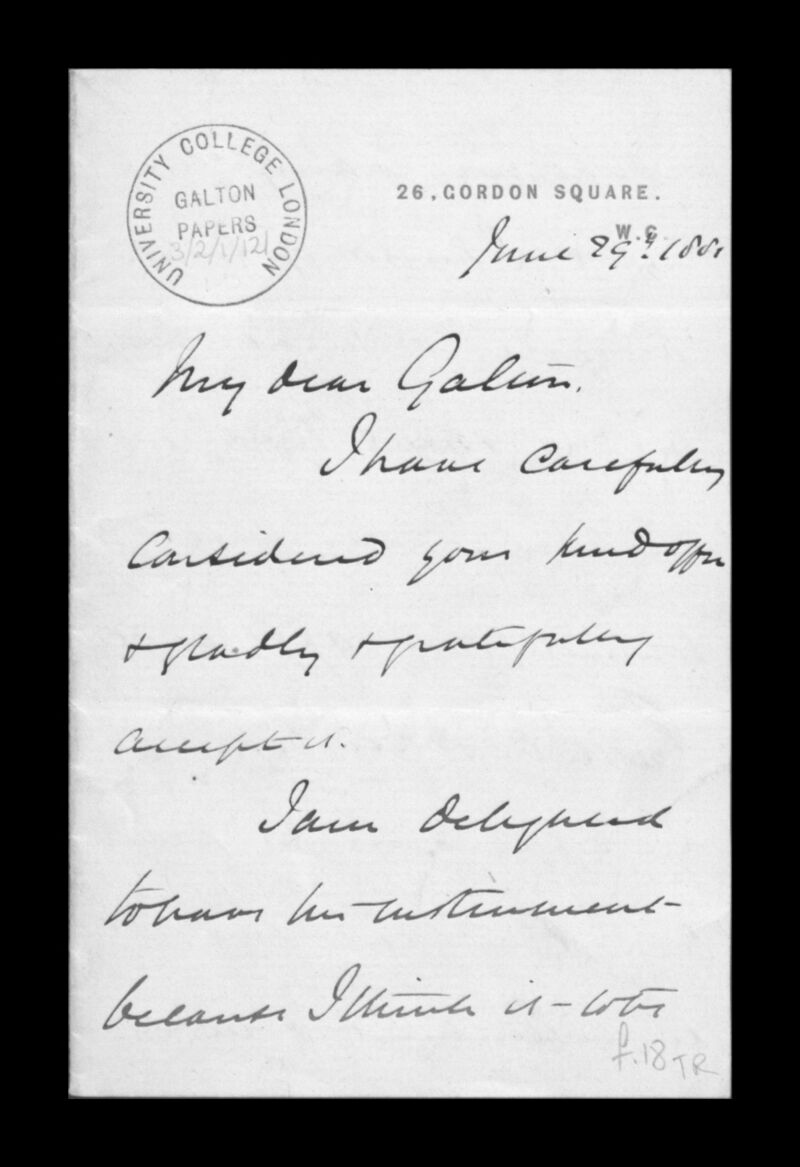 UNIVERSITY COLLEGE LONDON
GALTON
PAPERS
3/2/1/12/
26, GORDON SQUARE.
W.C.
June 29th 188
My dear Galton.
I have carefully
considered your kind offer
& gladly & gratefully
accept it.
I am delighted
to have the instrument
because I think it to be
f.18 TR